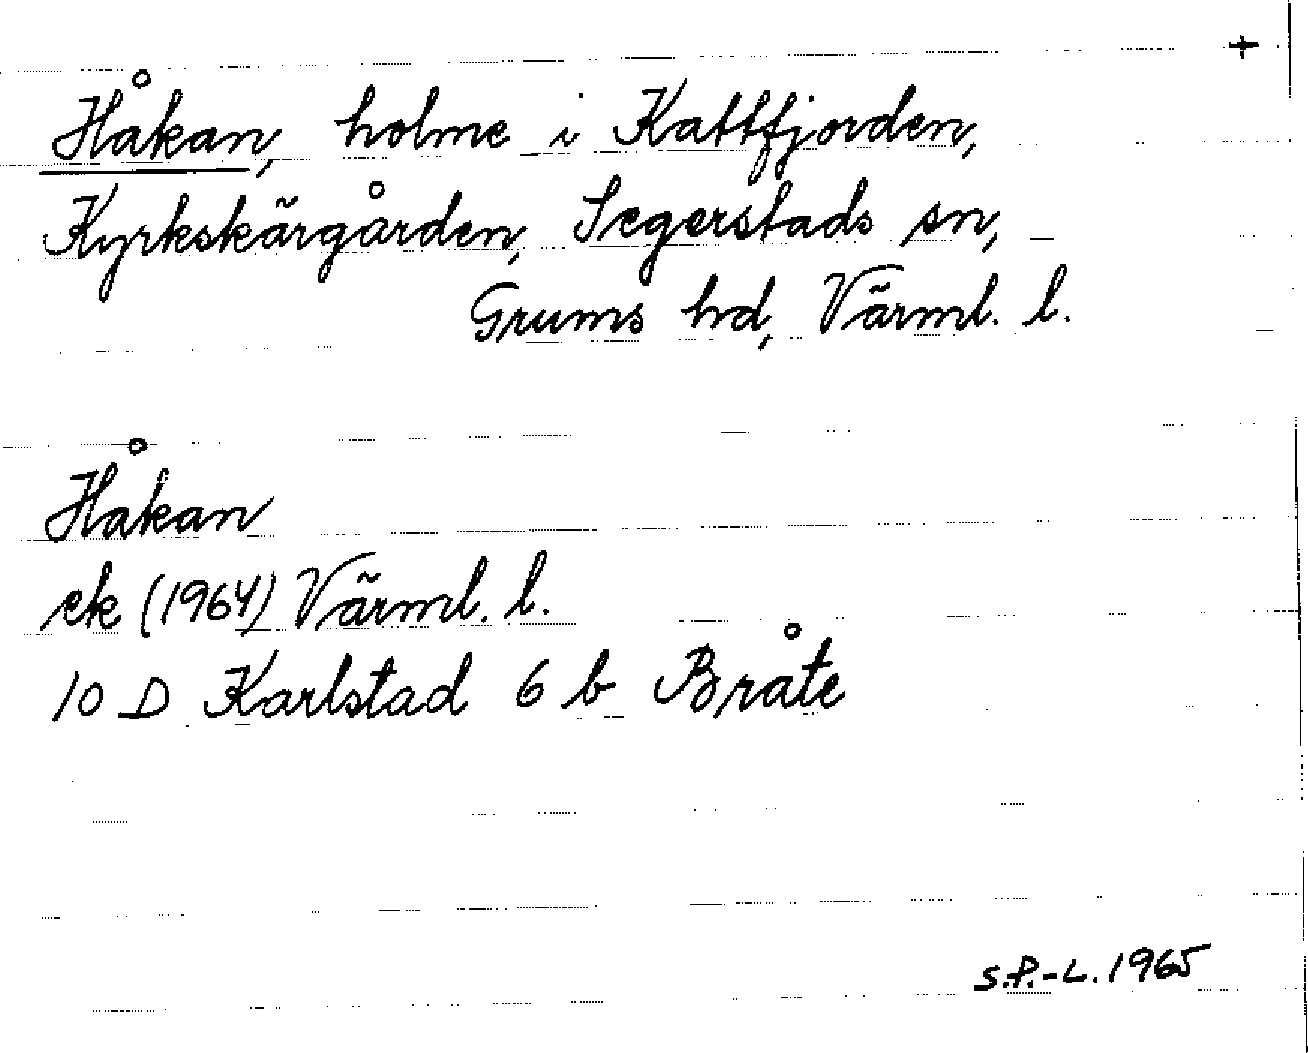 +
Håkan, holme i Kattfjorden,
Kyrkskärgården, Segerstads sn,
Grums hd, Värml. l.
Håkan
ek (1964) Värml. l.
10 D Karlstad 6 b Bråte
S.P.-L. 1965